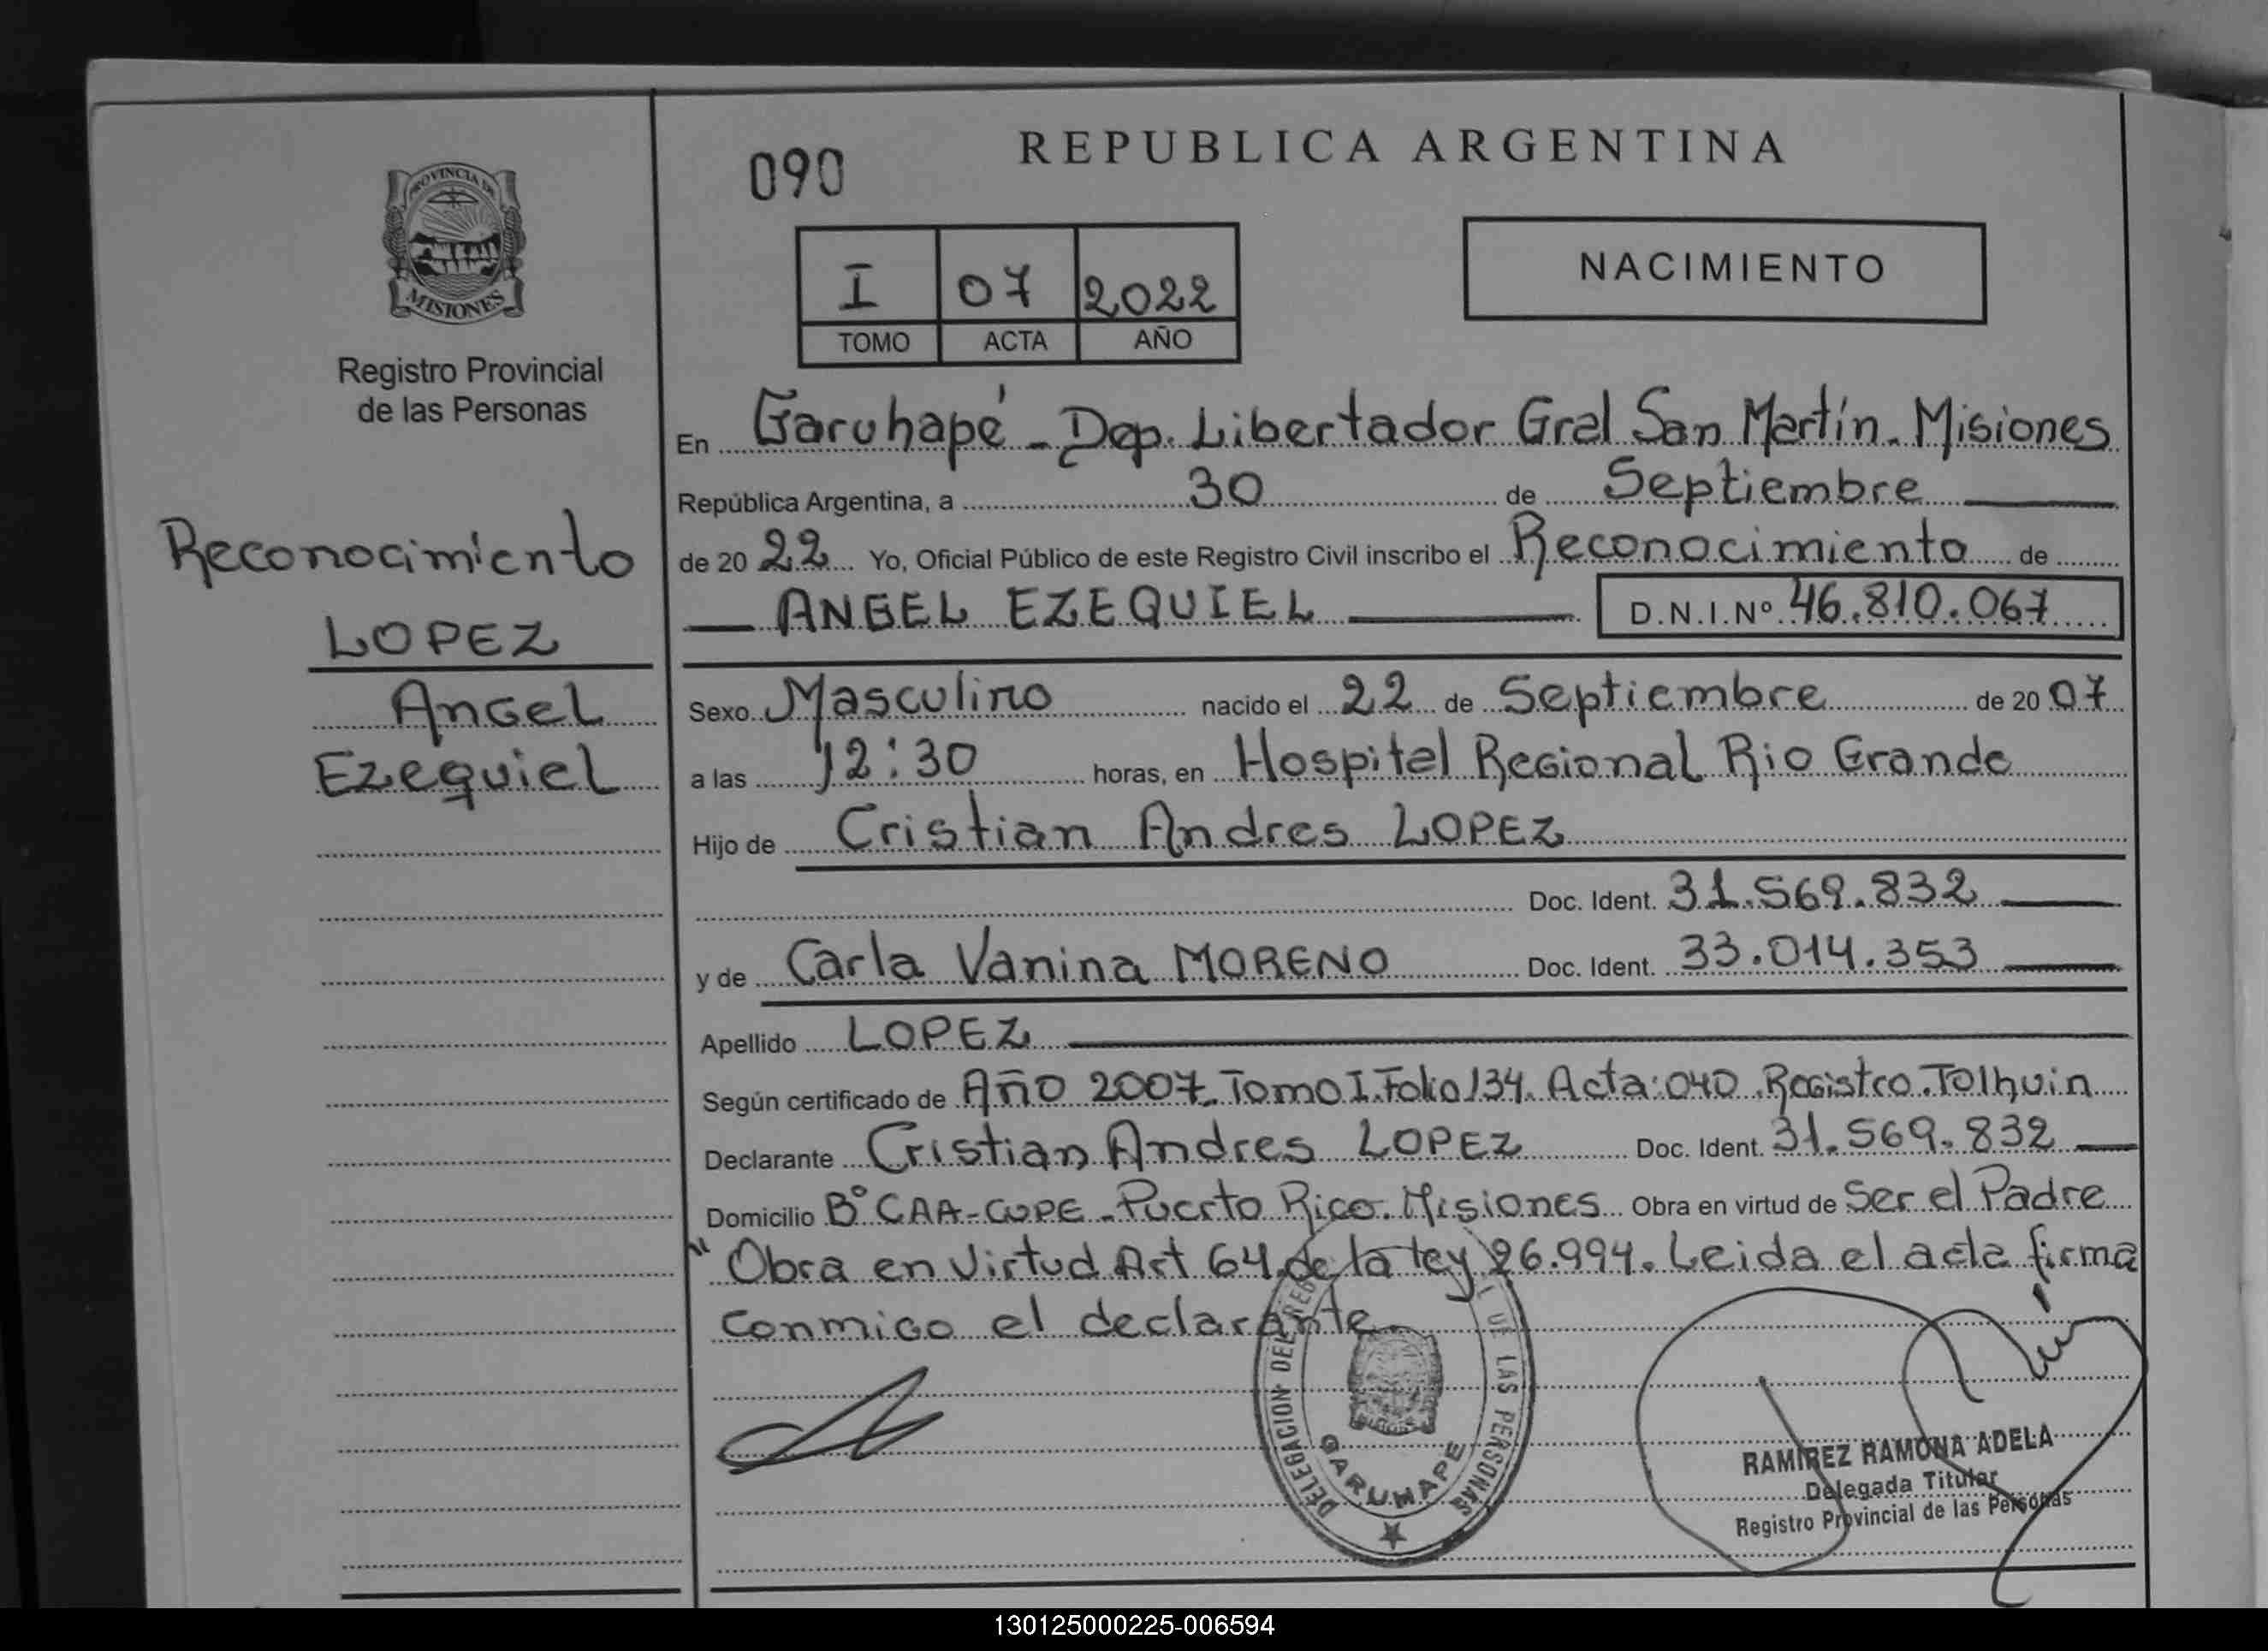 PROVINCIA DE
MISIONES
Registro Provincial
de las Personas
Reconocimiento
LOPEZ
Angel
Ezequiel
090
REPUBLICA ARGENTINA
I 07 2022
TOMO ACTA AÑO
NACIMIENTO
En Garuhapé - Dep. Libertador Gral San Martín - Misiones
República Argentina, a 30 de Septiembre
de 20 22 Yo, Oficial Público de este Registro Civil inscribo el Reconocimiento de
ANGEL EZEQUIEL D.N.I.Nº 46.810.067
Sexo Masculino nacido el 22 de Septiembre de 20 07
a las 12:30 horas, en Hospital Regional Rio Grande
Hijo de Cristian Andres LOPEZ
Doc. Ident. 31.569.832
y de Carla Vanina MORENO Doc. Ident. 33.014.353
Apellido LOPEZ
Según certificado de Año 2007. Tomo I. Folio 134. Acta: 040. Registro. Tolhuin
Declarante Cristian Andres LOPEZ Doc. Ident. 31.569.832
Domicilio Bº CAA-CUPE - Puerto Rico. Misiones Obra en virtud de Ser el Padre
" Obra en Virtud Art 64 de la ley 26.994. Leida el acta firma
conmigo el declarante.
DELEGACION DEL REG L DE LAS PERSONAS
GARUHAPE
RAMIREZ RAMONA ADELA
Delegada Titular
Registro Provincial de las Personas
130125000225-006594